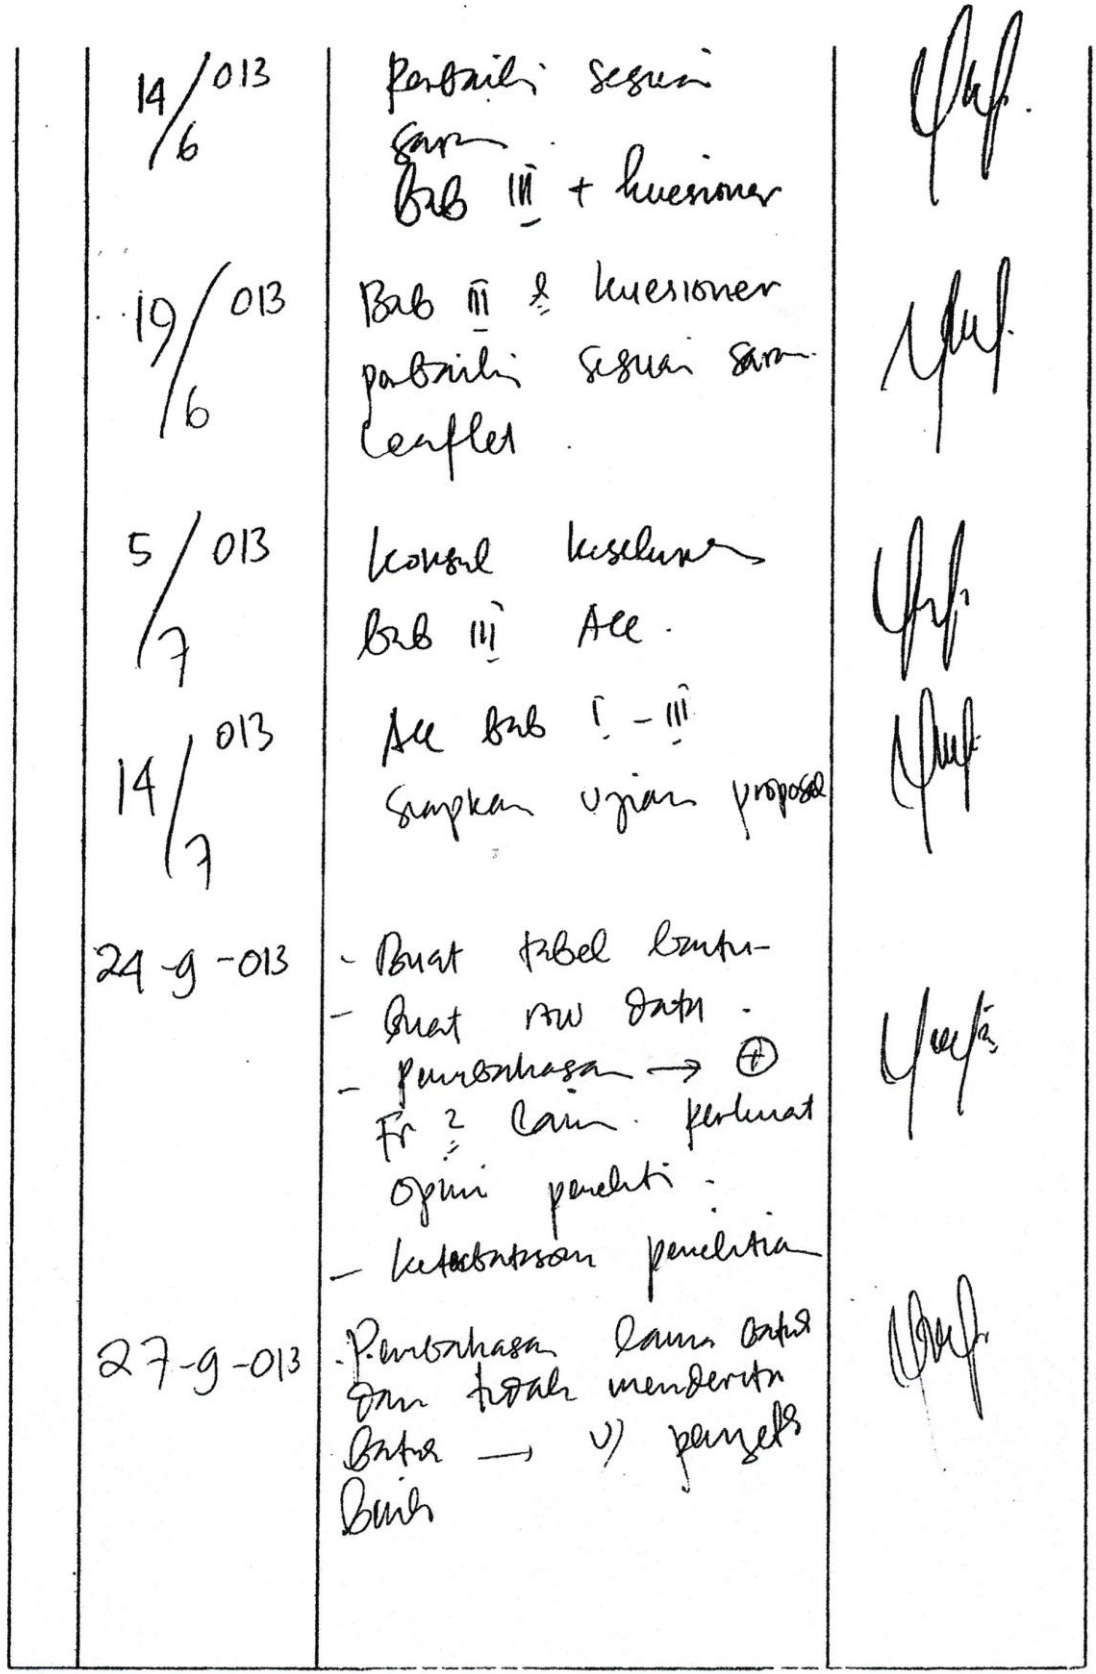 14/6 013
Perbaiki sesuai
saran.
Bab III + kuesioner
19/6 013
Bab III & kuesioner
perbaiki sesuai saran.
Leaflet.
5/7 013
Konsul keseluruhan
Bab III Acc.
14/7 013
Acc Bab I - III
Siapkan ujian proposal
24-9-013
- Buat tabel bantu
- Buat raw data.
- Pembahasan → (+)
Fr lain. perkuat
opini peneliti.
- keterbatasan penelitian
27-9-013
- Pembahasan lama batuk
dan tidak menderita
batuk →